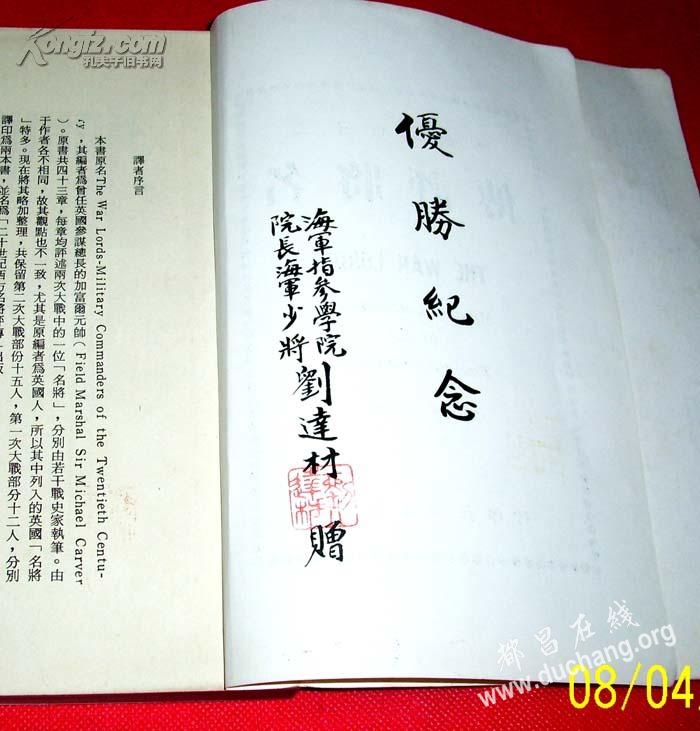 優勝紀念
海軍指參學院
院長海軍少將
劉達材 贈
劉達材
譯者序言
本書原名The War Lords-Military Commanders of the Twentieth Centu-
ry,其編者爲曾任英國參謀總長的加富爾元帥(Field Marshal Sir Michael Carver
)。原書共四十三章,每章均評述兩次大戰中的一位「名將」,分別由若干戰史家執筆。由
于作者各不相同,故其觀點也不一致,尤其是原編者爲英國人,所以其中列入的英國「名將
」特多。現在將其略加整理,共保留第二次大戰部份十五人,第一次大戰部分十二人,分別
譯印爲兩本書,並名爲「二十世紀西方名將評傳」出版
Kongfz.com
孔夫子旧书网
都昌在线
www.duchang.org
08/04